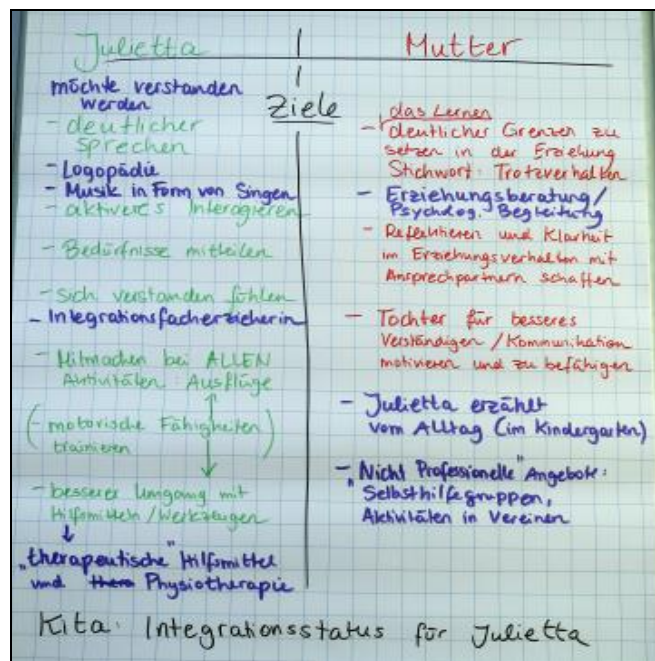 Julietta
Mutter
Ziele
möchte verstanden
werden
- deutlicher
sprechen
- Logopädie
- Musik in Form von Singen
- aktiveres Interagieren
- Bedürfnisse mitteilen
- sich verstanden fühlen
- Integrationsfacherzieherin
- Mitmachen bei ALLEN
Aktivitäten Ausflüge
(- motorische Fähigkeiten
trainieren)
- besserer Umgang mit
Hilfsmitteln / Werkzeugen
"therapeutische" Hilfsmittel
und Physiotherapie
das Lernen
- deutlicher Grenzen zu
setzen in der Erziehung
Stichwort: Trotzverhalten
- Erziehungsberatung/
Psycholog. Begleitung
- Reflektieren und Klarheit
im Erziehungsverhalten mit
Ansprechpartnern schaffen
- Tochter für besseres
Verständigen / Kommunikation
motivieren und zu befähigen
- Julietta erzählt
vom Alltag (im Kindergarten)
- "Nicht Professionelle" Angebote:
Selbsthilfegruppen,
Aktivitäten in Vereinen
Kita: Integrationsstatus für Julietta